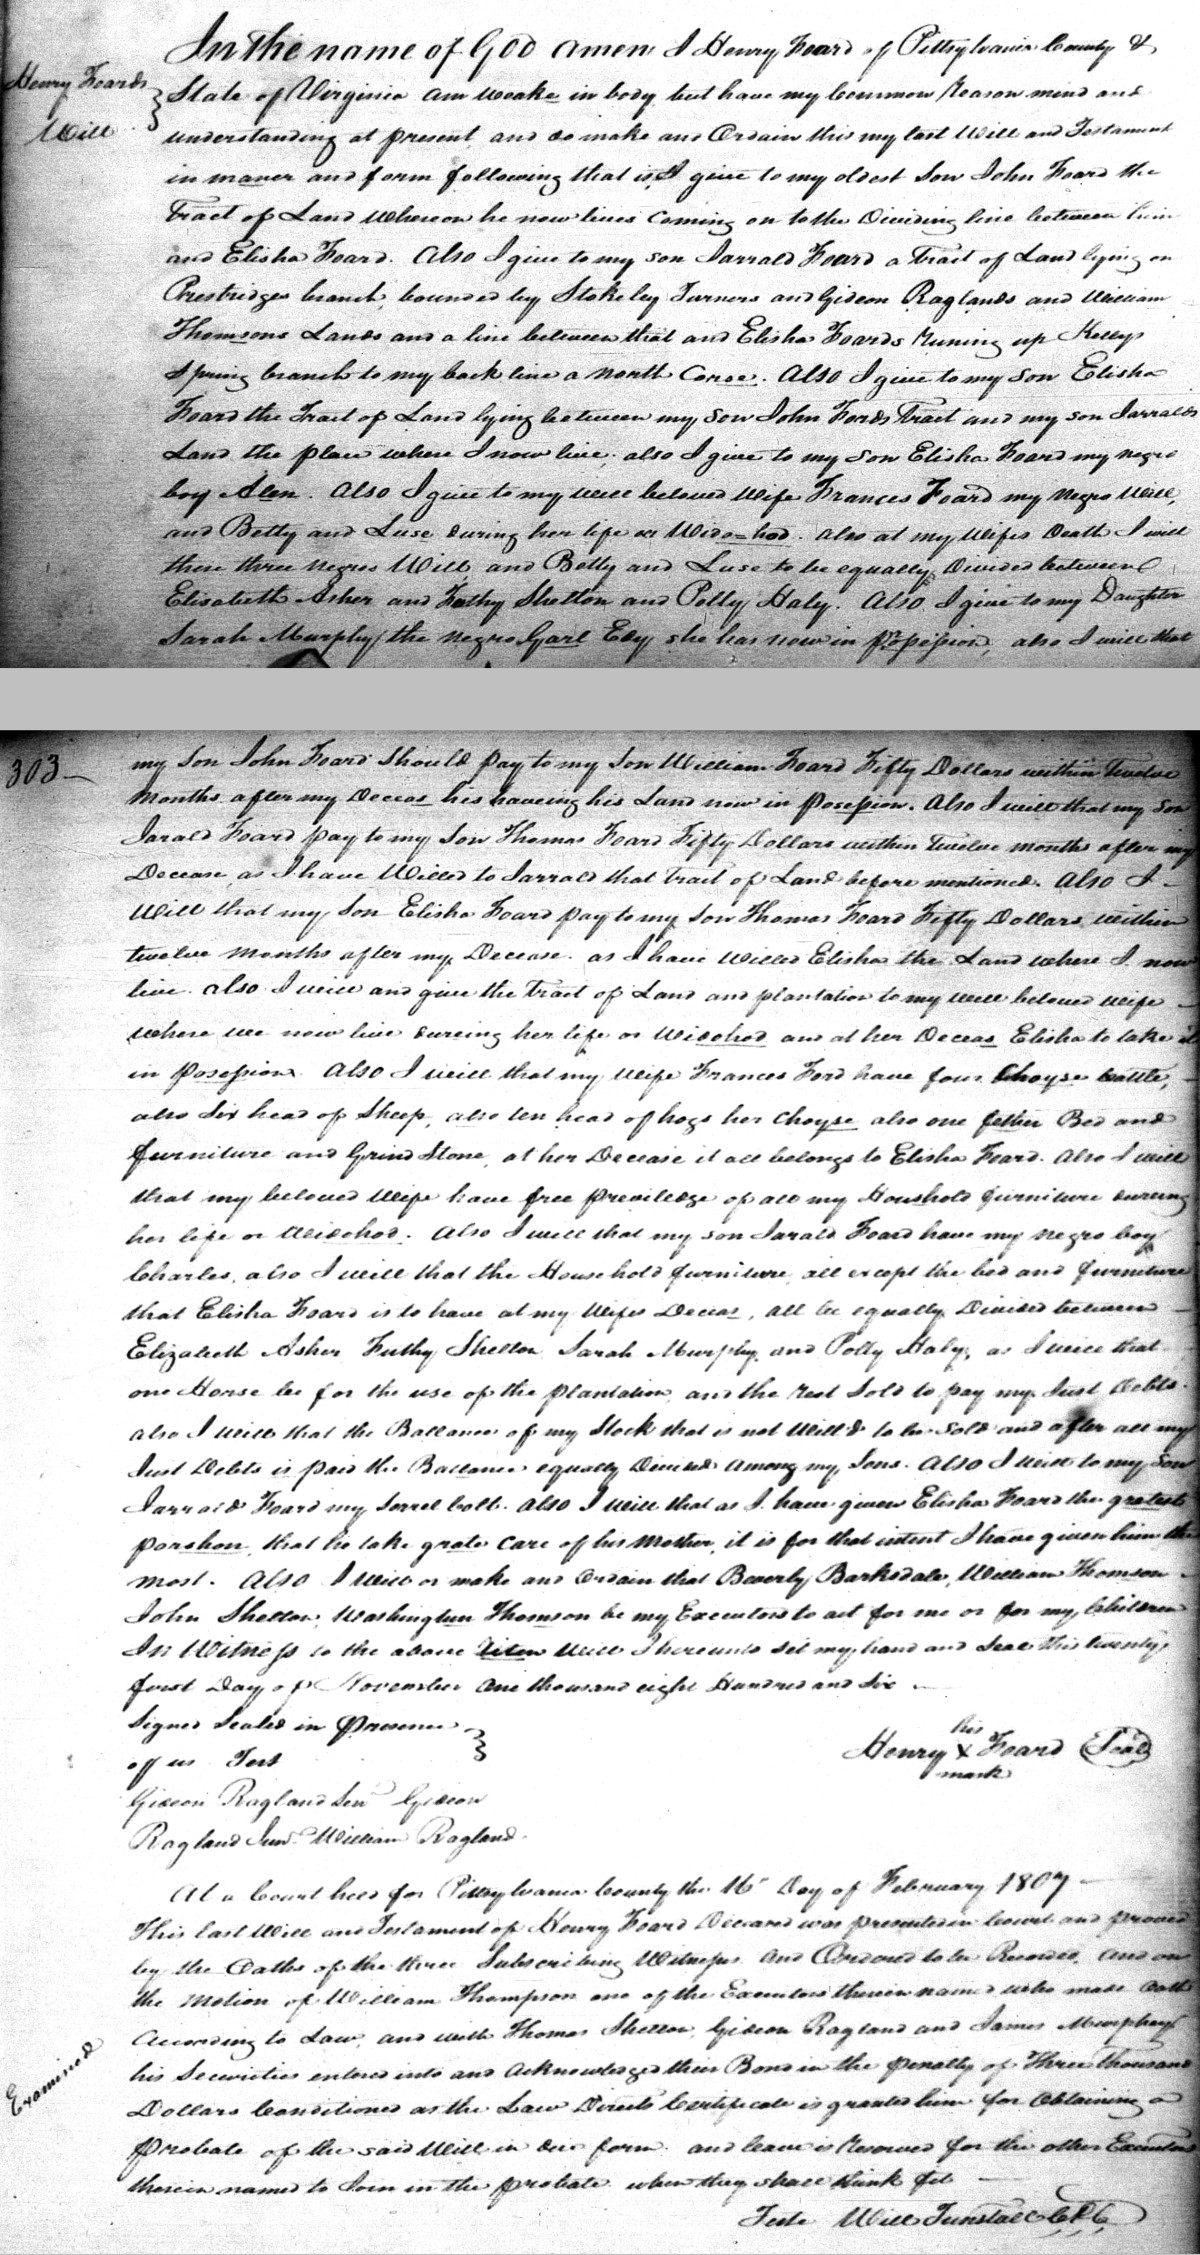 Henry Foards
Will
In the name of God amen I Henry Foard of Pittsylvania County &
State of Virginia am weake in body but have my Common Reason mind and
understanding at present and do make and Ordain this my last Will and Testament
in maner and form following that is, I give to my oldest Son John Foard the
Tract of Land Whereon he now lives Coming on to the Dividing line between him
and Elisha Foard. Also I give to my son Jarrald Foard a Tract of Land lying on
Prestridges branch, bounded by Stokeley Turners and Gideon Raglands and William
Thomsons Lands and a line between that and Elisha Foards Runing up Kellys
Spring branch to my back line a North Corse. Also I give to my Son Elisha
Foard the Tract of Land lying between my Son John Fords Tract and my son Jarralds
Land the place where I now live, also I give to my Son Elisha Foard my negro
boy Alen. Also I give to my well beloved Wife Frances Foard my Negro Will,
and Betty and Luse during her life or Wido=hod. also at my Wifes Death I will
these three negros Will and Betty and Luse to be equally Divided between
Elisabeth Asher and Futhy Shelton and Polly Haly. Also I give to my Daughter
Sarah Murphy the negro Garl Edy she has now in Posession, also I will that
303
my Son John Foard Should pay to my Son William Foard Fifty Dollars within Twelve
Months after my Deceas his haveing his Land now in Posession. Also I will that my Son
Jarald Foard pay to my Son Thomas Foard Fifty Dollars within Twelve months after my
Decease as I have Willed to Jarrald that Tract of Land before mentioned. Also I
Will that my Son Elisha Foard pay to my Son Thomas Foard Fifty Dollars within
twelve Months after my Decease. as I have Willed Elisha the Land where I now
live. also I will and give the Tract of Land and plantation to my well beloved wife
where we now live dureing her life or Widohod and at her Deceas Elisha to take it
in Posession. Also I will that my Wife Frances Ford have four Choyse Cattle,
also Six head of Sheep, also ten head of hogs her Choyse also one fether Bed and
furniture and Grind Stone, at her Decease it all belongs to Elisha Foard. Also I will
that my beloved Wife have free Previledge of all my Houshold furniture dureing
her life or Widohod. Also I will that my son Jarald Foard have my Negro boy
Charles, also I will that the Household furniture, all except the bed and furniture
that Elisha Foard is to have at my Wifes Deceas, all be equally Divided between
Elizabeth Asher Futhy Shelton Sarah Murphy and Polly Haly, as I will that
one Horse be for the use of the plantation, and the rest Sold to pay my Just Debts.
also I will that the Ballance of my Stock that is not Will'd to be Sold and after all my
Just Debts is paid the Ballance equally Divided among my Sons. Also I will to my Son
Jarrald Foard my Sorrel Colt. Also I will that as I have given Elisha Foard the gratest
porshon, that he take grate care of his Mother, it is for that intent I have given him the
most. Also I Will or make and Ordain that Beverly Barksdale, William Thomson
John Shelton, Washington Thomson be my Executors to act for me or for my Children
In Witness to the above Will I hereunto set my hand and Seal this twenty
first Day of November one thousand eight Hundred and Six
Signed Sealed in Presence
of us Test
his
Henry X Foard (Seal)
mark
Gideon Ragland Senr Gideon
Ragland Junr William Ragland
At a Court held for Pittsylvania County the 16th Day of February 1807
This last Will and Testament of Henry Foard Deceased was presented in Court and proved
by the Oaths of the three Subscribing Witness and Ordered to be Recorded, and on
the Motion of William Thompson one of the Executors therein named who made oath
According to Law, and with Thomas Shelton, Gideon Ragland and James Murphey
his Securities entered into and acknowledged their Bond in the Penalty of Three thousand
Dollars Conditioned as the Law Directs Certificate is granted him for obtaining a
Probate of the said Will in due form and leave is Reserved for the other Executors
therein named to Join in the probate when they shall think fit
Examined
Teste Will Tunstall C.P.C.